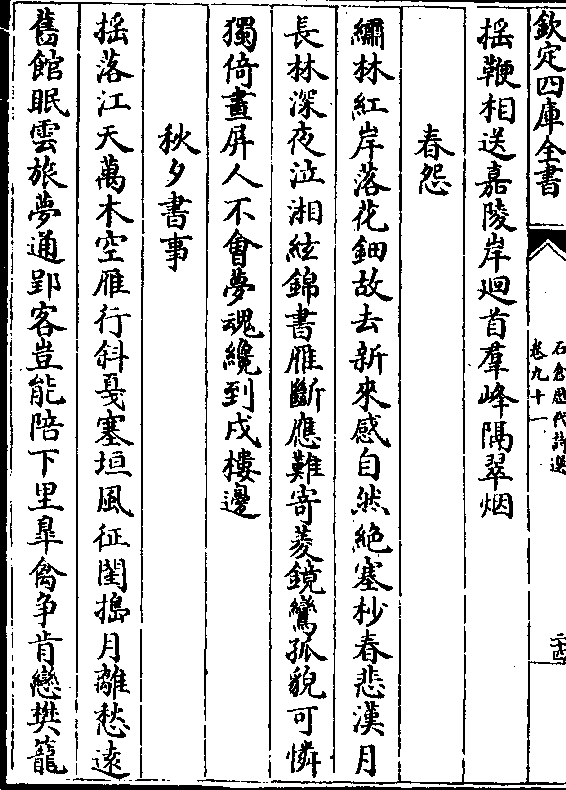 欽定四庫全書
石倉歴代詩選
卷九十一
二十四
揺鞭相送嘉陵岸廻首羣峰隔翠烟
春怨
繡林紅岸落花鈿故去新來感自然絶塞杪春悲漢月
長林深夜泣湘絃錦書雁斷應難寄菱鏡鸞孤貌可憐
獨倚畫屛人不會夢魂纔到戍樓邊
秋夕書事
揺落江天萬木空雁行斜戛塞垣風征閨搗月離愁逺
舊館眠雲旅夢通郢客豈能陪下里臯禽争肯戀樊籠